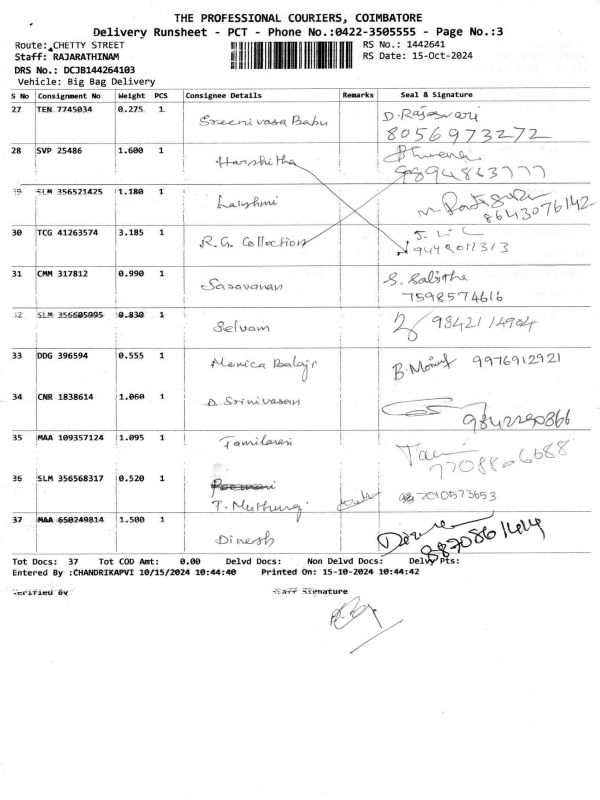 THE PROFESSIONAL COURIERS, COIMBATORE
Delivery Runsheet - PCT - Phone No.:0422-3505555 - Page No.:3
Route: CHETTY STREET RS No.: 1442641
Staff: RAJARATHINAM RS Date: 15-Oct-2024
DRS No.: DCJB144264103
Vehicle: Big Bag Delivery
S No Consignment No Weight PCS Consignee Details Remarks Seal & Signature
27 TEN 7745034 0.275 1 Sreenivasa Babu D. Rajeswari
8056973272
28 SVP 25486 1.600 1 Harshitha
9894863777
29 SLM 356521425 1.180 1 Lakshmi
8643076142
30 TCG 41263574 3.185 1 R.G. Collection
31 CMM 317812 0.990 1 Saravanan S. Sabitha
7598574616
32 SLM 356605995 0.830 1 Selvam 9842114904
33 DDG 396594 0.555 1 Monica Balaji B. Monica 9976912921
34 CNR 1838614 1.060 1 D Srinivasan
9842290866
35 MAA 109357124 1.095 1 Tamilarasi
7708806688
36 SLM 356568317 0.520 1
T. Muthuraj 7010573653
37 MAA 650249814 1.500 1 Dinesh
8870861414
Tot Docs: 37 Tot COD Amt: 0.00 Delvd Docs: Non Delvd Docs: Delvy Pts:
Entered By :CHANDRIKAPVI 10/15/2024 10:44:40 Printed On: 15-10-2024 10:44:42
Verified By Staff Signature